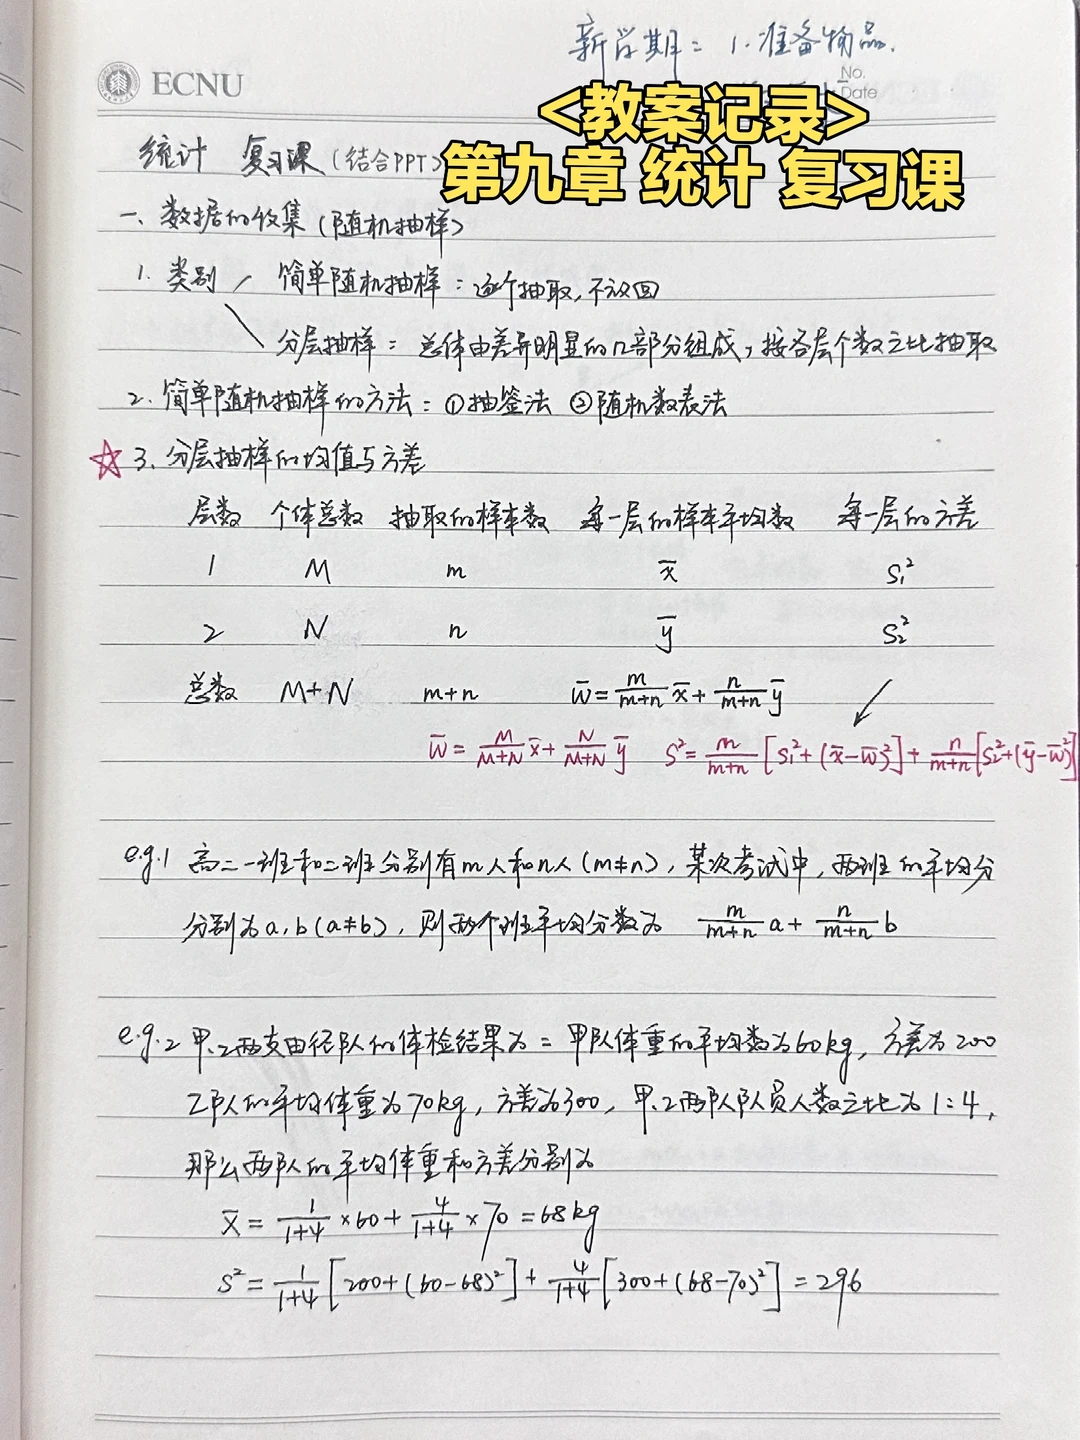 新学期: 1. 准备物品.
ECNU
No.
Date
<教案记录>
第九章 统计 复习课
统计 复习课 (结合PPT)
一、数据的收集 (随机抽样)
1. 类别 简单随机抽样: 逐个抽取, 不放回
分层抽样: 总体由差异明显的几部分组成, 按各层个数之比抽取
2. 简单随机抽样的方法: ①抽签法 ②随机数表法
☆ 3. 分层抽样的均值与方差
层数 个体总数 抽取的样本数 每一层的样本平均数 每一层的方差
1 M m x̄ s₁²
2 N n ȳ s₂²
总数 M+N m+n w̄ = m/(m+n) x̄ + n/(m+n) ȳ
w̄ = M/(M+N) x̄ + N/(M+N) ȳ s² = m/(m+n) [s₁²+(x̄-w̄)²] + n/(m+n) [s₂²+(ȳ-w̄)²]
e.g.1 高二一班和二班分别有m人和n人 (m≠n), 某次考试中, 两班的平均分
分别为a, b (a≠b), 则两个班平均分数为 m/(m+n) a + n/(m+n) b
e.g.2 甲.乙两支田径队的体检结果为: 甲队体重的平均数为60kg, 方差为200
乙队的平均体重为70kg, 方差为300, 甲.乙两队队员人数之比为1:4,
那么两队的平均体重和方差分别为
x̄ = 1/(1+4) ×60 + 4/(1+4) ×70 = 68kg
s² = 1/(1+4) [200+(60-68)²] + 4/(1+4) [300+(68-70)²] = 296